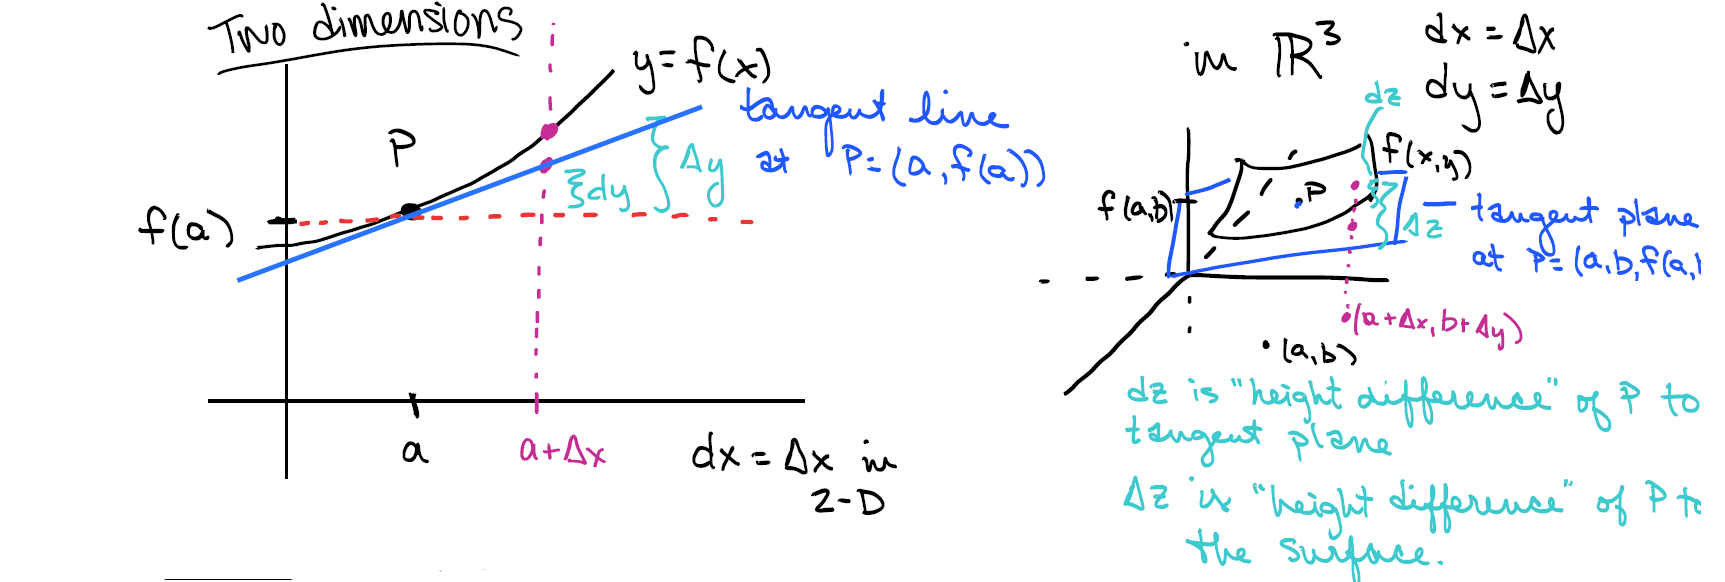 Two dimensions
y=f(x)
P
tangent line
at P=(a,f(a))
Δy
dy
f(a)
a
a+Δx
dx = Δx in
2-D
in ℝ³
dx = Δx
dy = Δy
dz
f(x,y)
P
f(a,b)
Δz
tangent plane
at P=(a,b,f(a,
(a+Δx, b+Δy)
(a,b)
dz is "height difference" of P to
tangent plane
Δz is "height difference" of P to
the surface.